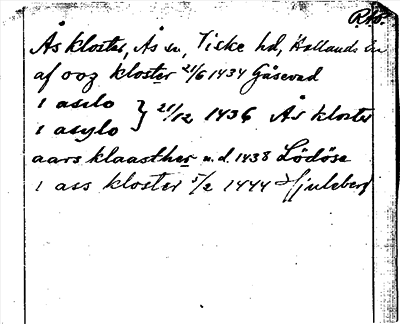 Ås kloster, Ås sn, Viske hd, Hallands län
af ooz kloster 21/6 1434 Gåsevad
i asilo
i asylo } 21/12 1436 Ås kloster
aars klaasther u.d. 1438 Lödöse
i ass kloster 5/2 1444 Hjuleberg